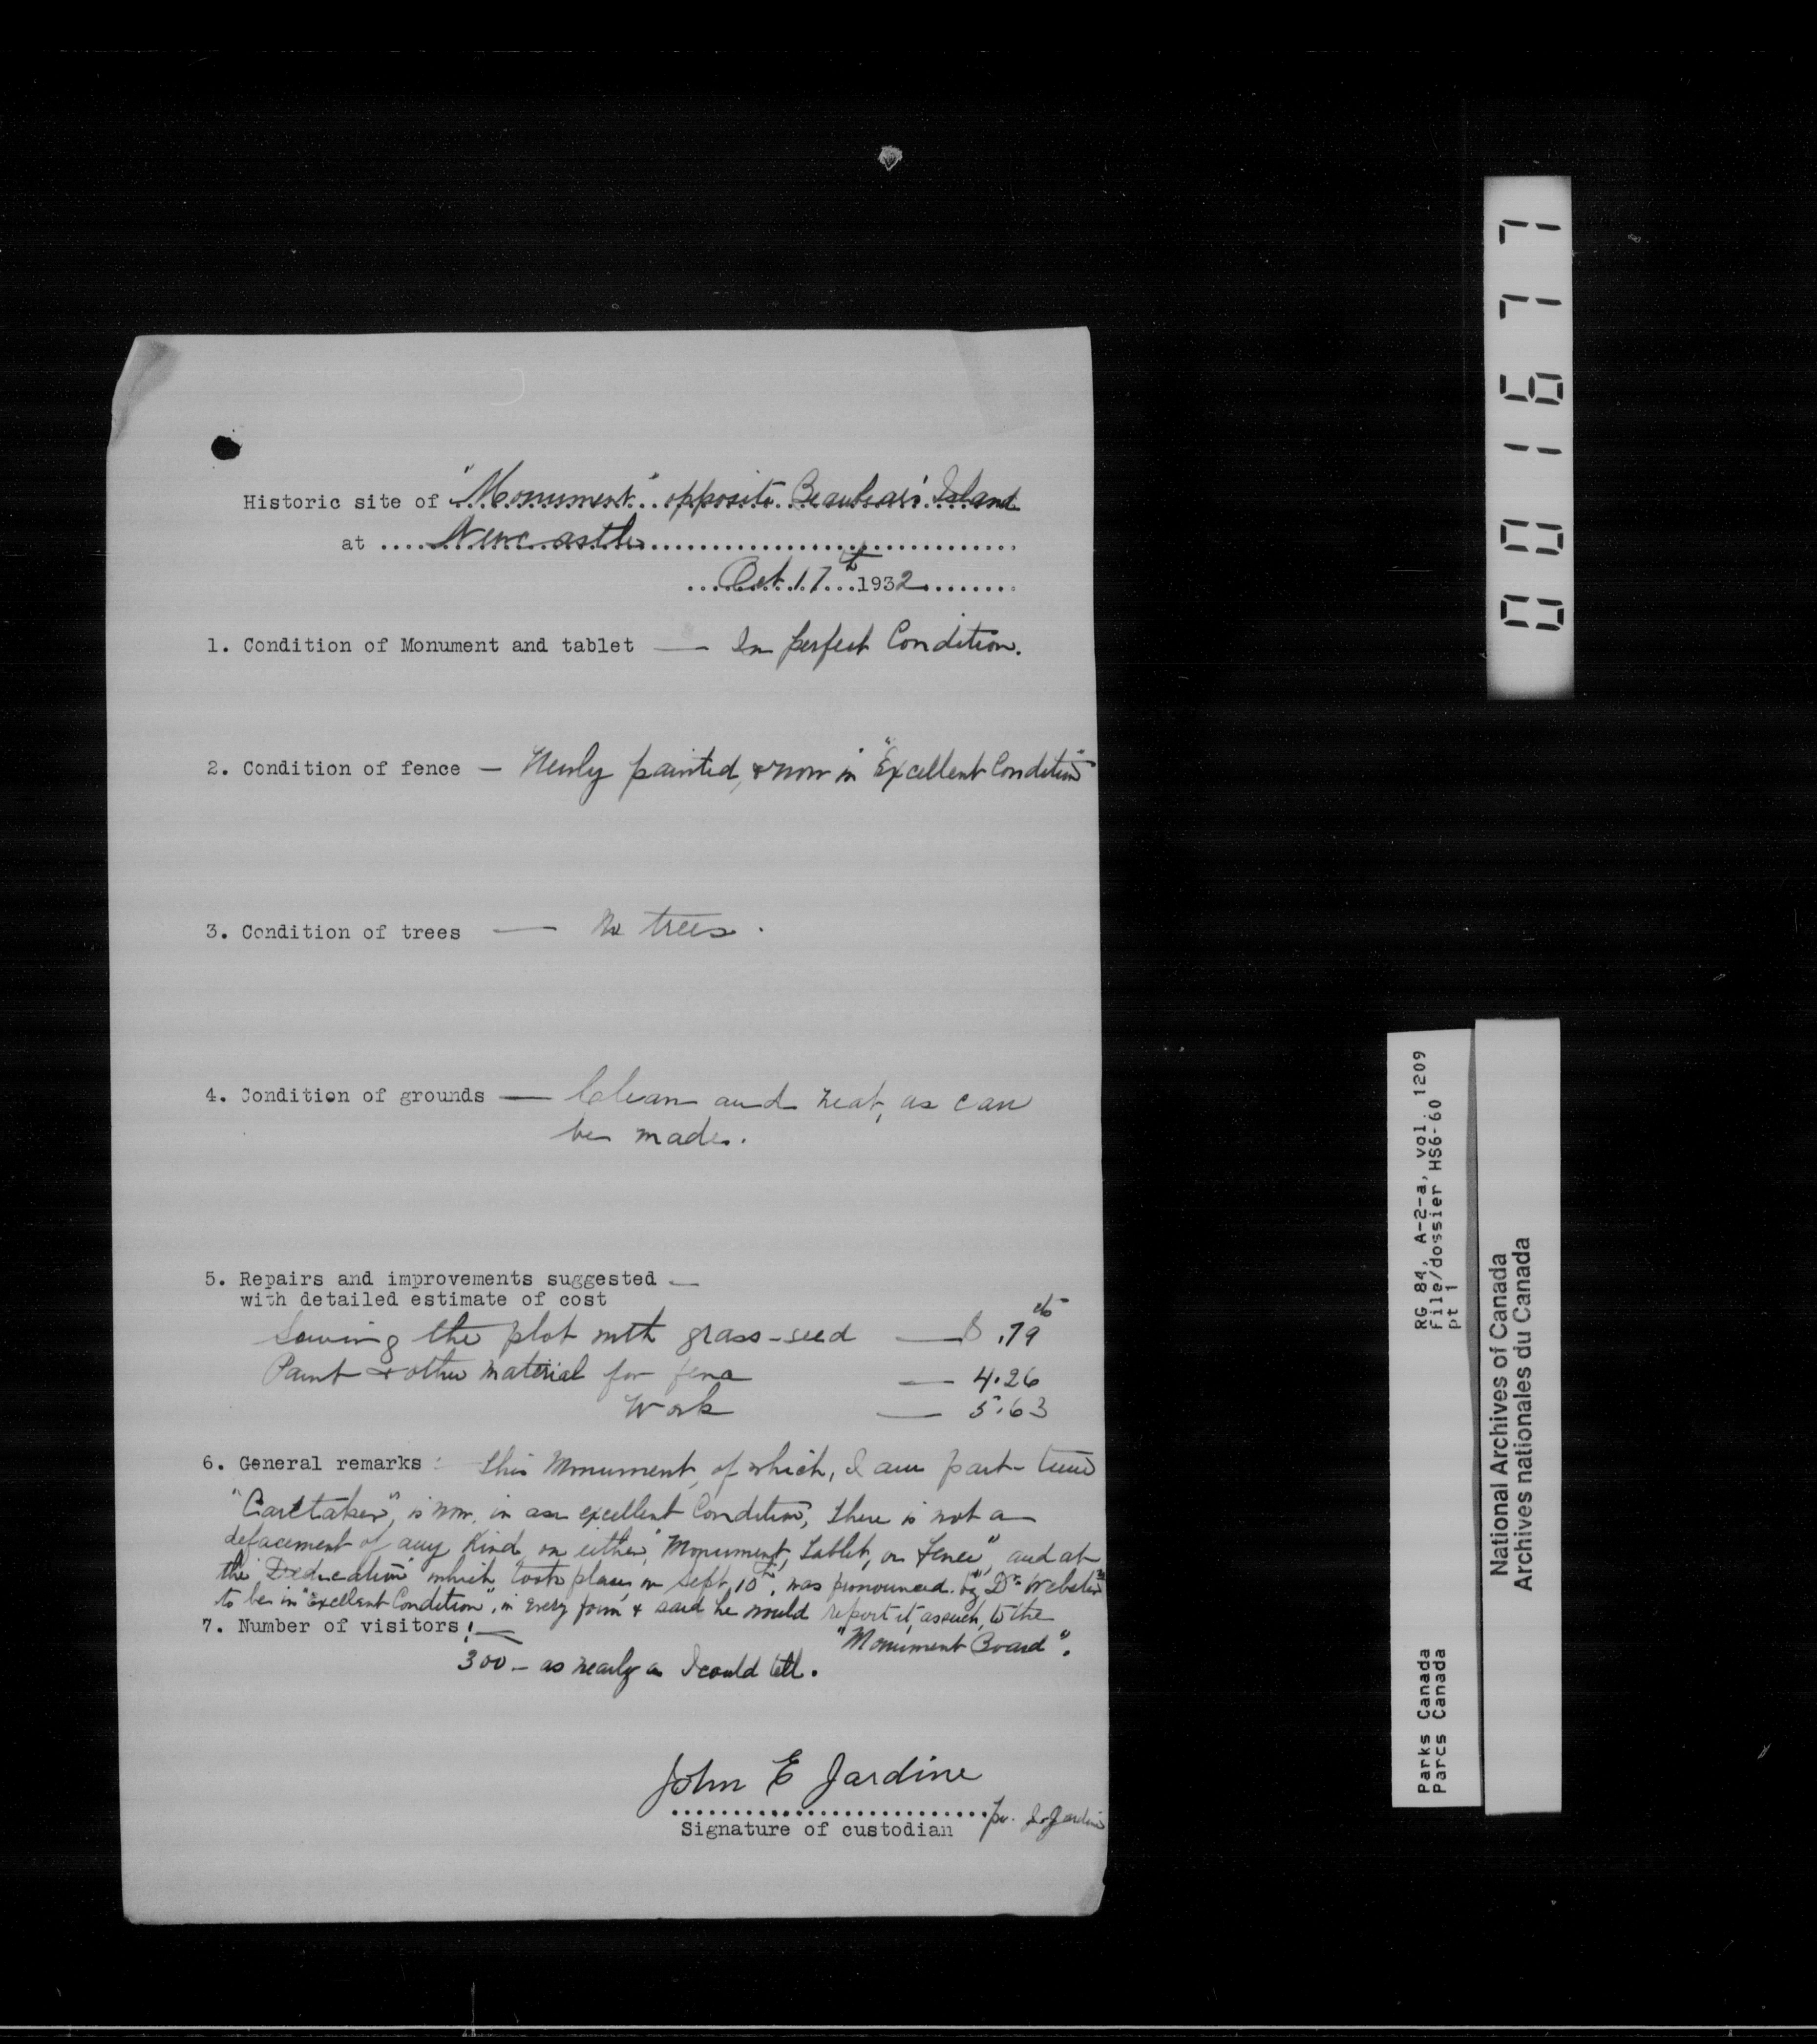 Historic site of "Monument" opposite Beaubears' Island
at Newcastle
Oct. 17th 1932
1. Condition of Monument and tablet — In perfect Condition.
2. Condition of fence — Newly painted, & now in "Excellent Condition"
3. Condition of trees — No trees.
4. Condition of grounds — Clean and neat, as can
be made.
5. Repairs and improvements suggested —
with detailed estimate of cost
Sowing the plot with grass-seed — $ .79 cts
Paint & other material for fence — 4.26
Work — 5.63
6. General remarks: This Monument, of which, I am part-time
"Caretaker", is now, in an excellent Condition, there is not a
defacement of any Kind, on either, "Monument, Tablet, or Fence", and at
the "Dedication" which took place, on Sept, 10th, was pronounced. by "Dr. Webster"
to be in "excellent Condition", in every form & said he would report it, as such, to the
"Monument Board".
7. Number of visitors: —
300 — as nearly as I could tell.
John E Jardine
Signature of custodian
per. Jardine
001677
RG 84, A-2-a, vol. 1209
File/dossier HS6-60
pt 1
Parks Canada
Parcs Canada
National Archives of Canada
Archives nationales du Canada